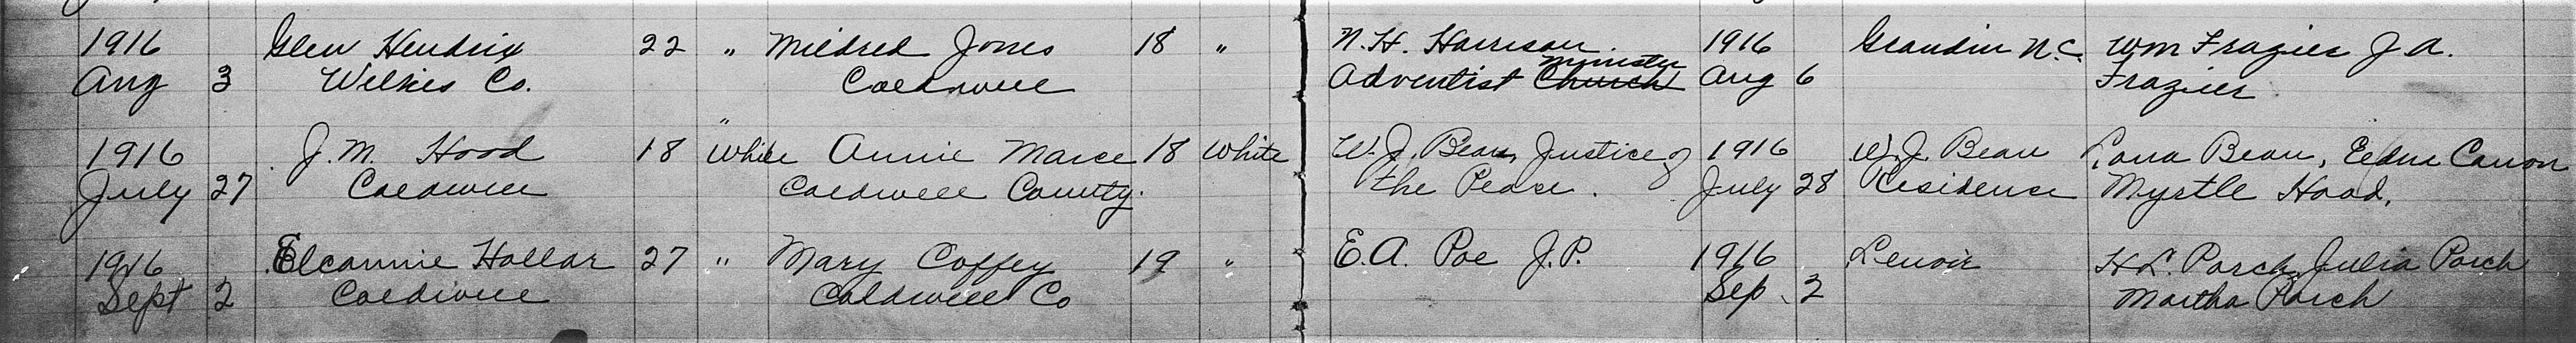 1916 Glen Hendrix 22 " Mildred Jones 18 " N. H. Harrison. 1916 Grandin N.C. Wm Frazier J A.
Aug 3 Wilkes Co. Caldwell Adventist Church Minister Aug 6 Frazier
"
1916 J. M. Hood 18 White Annie 18 White W. J. Bean, Justice of 1916 W. J. Bean Lona Bean, Canon
July 27 Caldwell Caldwell County. the Peace. July 28 Residense Myrtle Hood.
1916 Hollar 27 " Mary Coffey 19 " E. A. Poe J.P. 1916 Lenoir H L. Porch Julia Porch
Sept 2 Caldwell Caldwell Co Sep. 2 Martha Porch